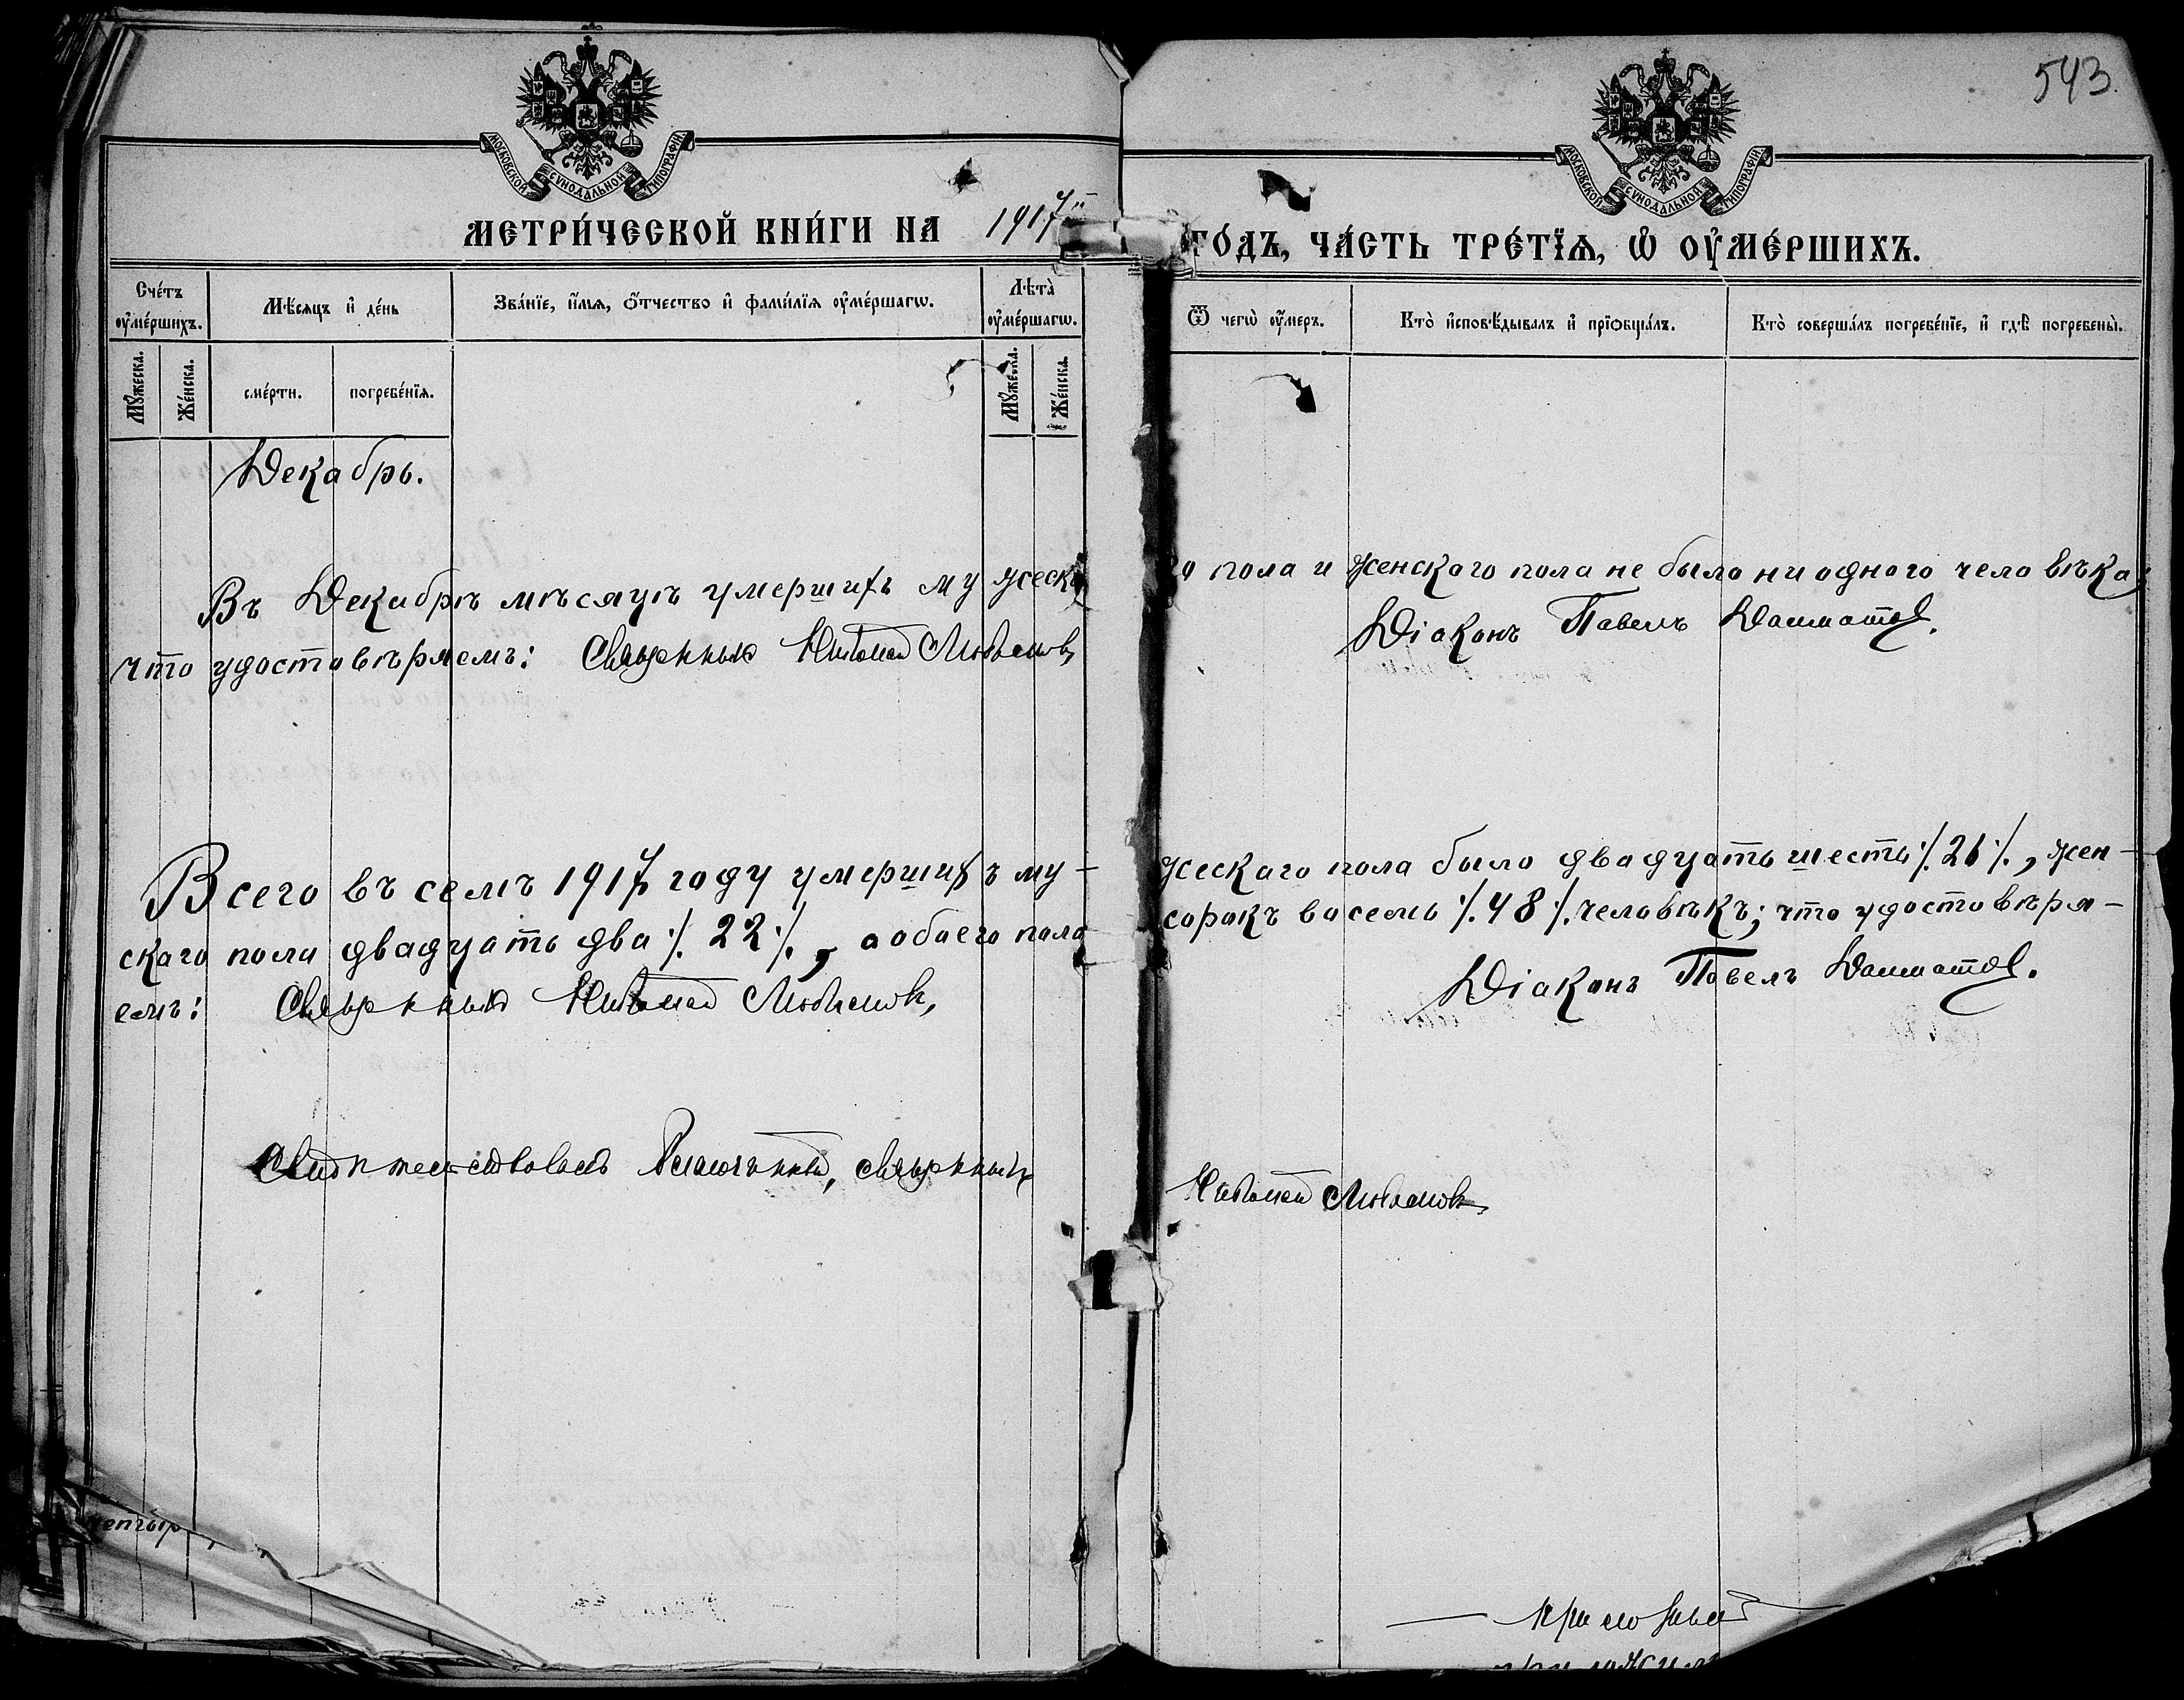 543.
МОСКОВСКОЙ СѴНОДАЛЬНОЙ ТИПОГРАФІИ
МОСКОВСКОЙ СѴНОДАЛЬНОЙ ТИПОГРАФІИ
МЕТРИ́ЧЕСКОЙ КНИ́ГИ НА 1917й ГО́ДЪ, ЧА́СТЬ ТРЕ́ТЇѦ, Ѡ҆ ОУ҆МЕ́РШИХЪ.
Сче́тъ оу҆ме́ршихъ.
Мѣ́сяцъ и҆ де́нь
Зва́нїе, и҆́мя, ѻ҆́тчество и҆ фами́лїя оу҆ме́ршагѡ.
Лѣта̀ оу҆ме́ршагѡ.
Ѿ чегѡ̀ оу҆́меръ.
Кто̀ и҆сповѣ́дывалъ и҆ прїѻбща́лъ.
Кто̀ соверша́лъ погребе́нїе, и҆ гдѣ̀ погребены̀.
Мꙋ́жеска.
Же́нска.
сме́рти.
погребе́нїя.
Мꙋ́жеска.
Же́нска.
Декабрь.
Въ Декабрѣ мѣсяцѣ умершихъ мужескаго пола и женскаго пола не было ни одного человѣка;
что удостовѣряемъ: Священникъ Николай Любимовъ, Діаконъ Павелъ Далматовъ.
Всего въ семъ 1917 году умершихъ му- жескаго пола было двадцать шесть ./. 26 ./., жен-
скаго пола двадцать два ./. 22 ./., а обоего пола сорокъ восемь ./. 48 ./. человѣкъ; что удостовѣря-
емъ: Священникъ Николай Любимовъ, Діаконъ Павелъ Далматовъ.
Свидѣтельствовалъ Благочинный, священникъ Николай Любимовъ